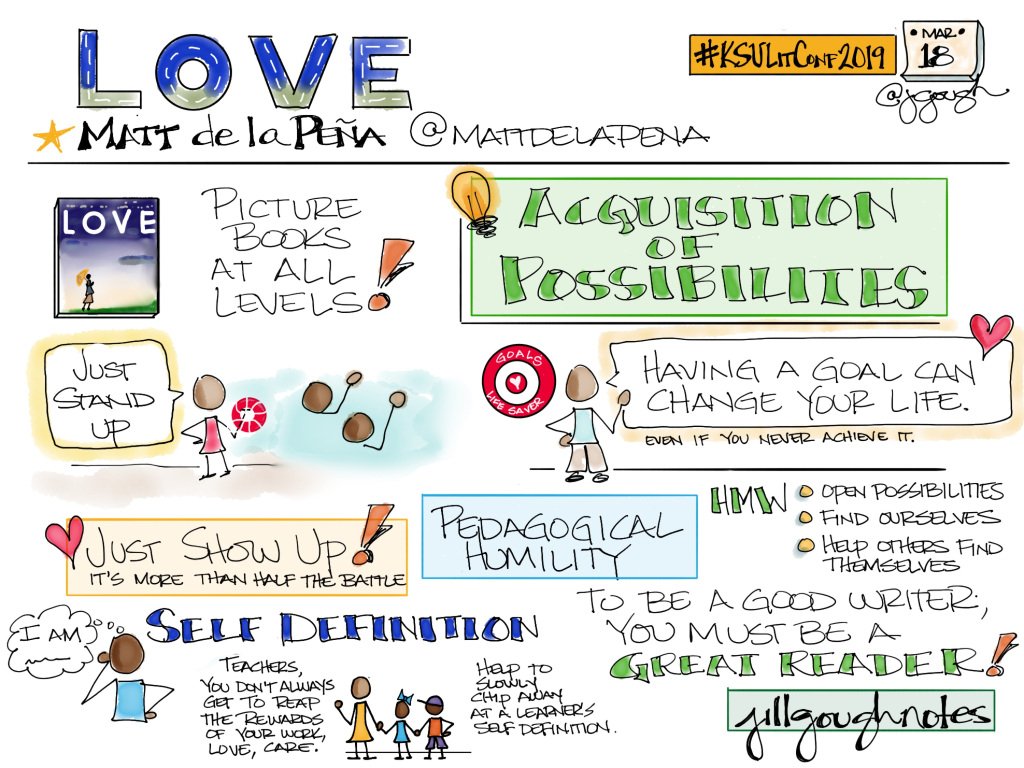 LOVE
#KSULitConf2019
MAR
18
@jgough
MATT de la PEÑA @MATTDELAPENA
LOVE
PICTURE
BOOKS
AT ALL
LEVELS!
ACQUISITION
OF
POSSIBILITES
JUST
STAND
UP
GOALS
LIFE SAVER
HAVING A GOAL CAN
CHANGE YOUR LIFE.
EVEN IF YOU NEVER ACHIEVE IT.
JUST SHOW UP!
IT'S MORE THAN HALF THE BATTLE
PEDAGOGICAL
HUMILITY
HMW
OPEN POSSIBILITIES
FIND OURSELVES
HELP OTHERS FIND
THEMSELVES
I AM
SELF DEFINITION
TEACHERS,
YOU DON'T ALWAYS
GET TO REAP
THE REWARDS
OF YOUR WORK,
LOVE, CARE.
HELP TO
SLOWLY
CHIP AWAY
AT A LEARNER'S
SELF DEFINITION.
TO BE A GOOD WRITER,
YOU MUST BE A
GREAT READER!
jillgoughnotes